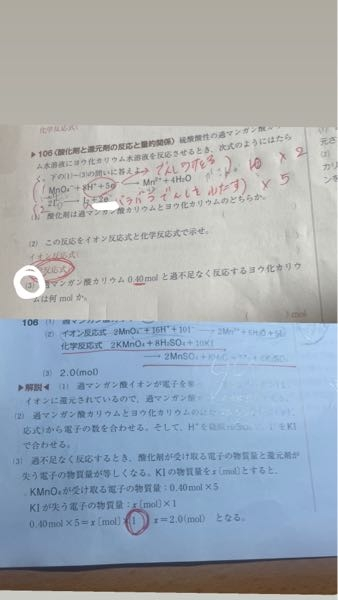 化学反応式:
▶106〈酸化剤と還元剤の反応と量的関係〉硫酸酸性の過マンガン酸カ
ム水溶液にヨウ化カリウム水溶液を反応させるとき,次式のようにはたら
く。下の(1)～(3)の問いに答えよ。
MnO₄⁻+8H⁺+5e⁻ → Mn²⁺+4H₂O
× 2
2I⁻ → I₂+2e⁻
× 5
酸化剤は過マンガン酸カリウムとヨウ化カリウムのどちらか。
(2) この反応をイオン反応式と化学反応式で示せ。
イオン反応式:
反応式:
(3) 過マンガン酸カリウム 0.40mol と過不足なく反応するヨウ化カリウ
ムは何 mol か。
) mol
106 (1) 過マンガン酸カリウム
(2) イオン反応式 2MnO₄⁻+16H⁺+10I⁻ → 2Mn²⁺+8H₂O+5I₂
化学反応式 2KMnO₄+8H₂SO₄+10KI
→ 2MnSO₄
(3) 2.0(mol)
▶解説◀ (1) 過マンガン酸イオンが電子を
イオンに還元されているので,過マンガン酸
(2) 過マンガン酸カリウムとヨウ化カリウムの
応式)から電子の数を合わせる。そして,H⁺を
で合わせる。
(3) 過不足なく反応するとき,酸化剤が受け取る電子の物質量と還元剤が
失う電子の物質量が等しくなる。KIの物質量をx[mol]とすると,
KMnO₄が受け取る電子の物質量:0.40mol×5
KIが失う電子の物質量:x[mol]×1
0.40mol×5=x[mol]×1 x=2.0(mol) となる。